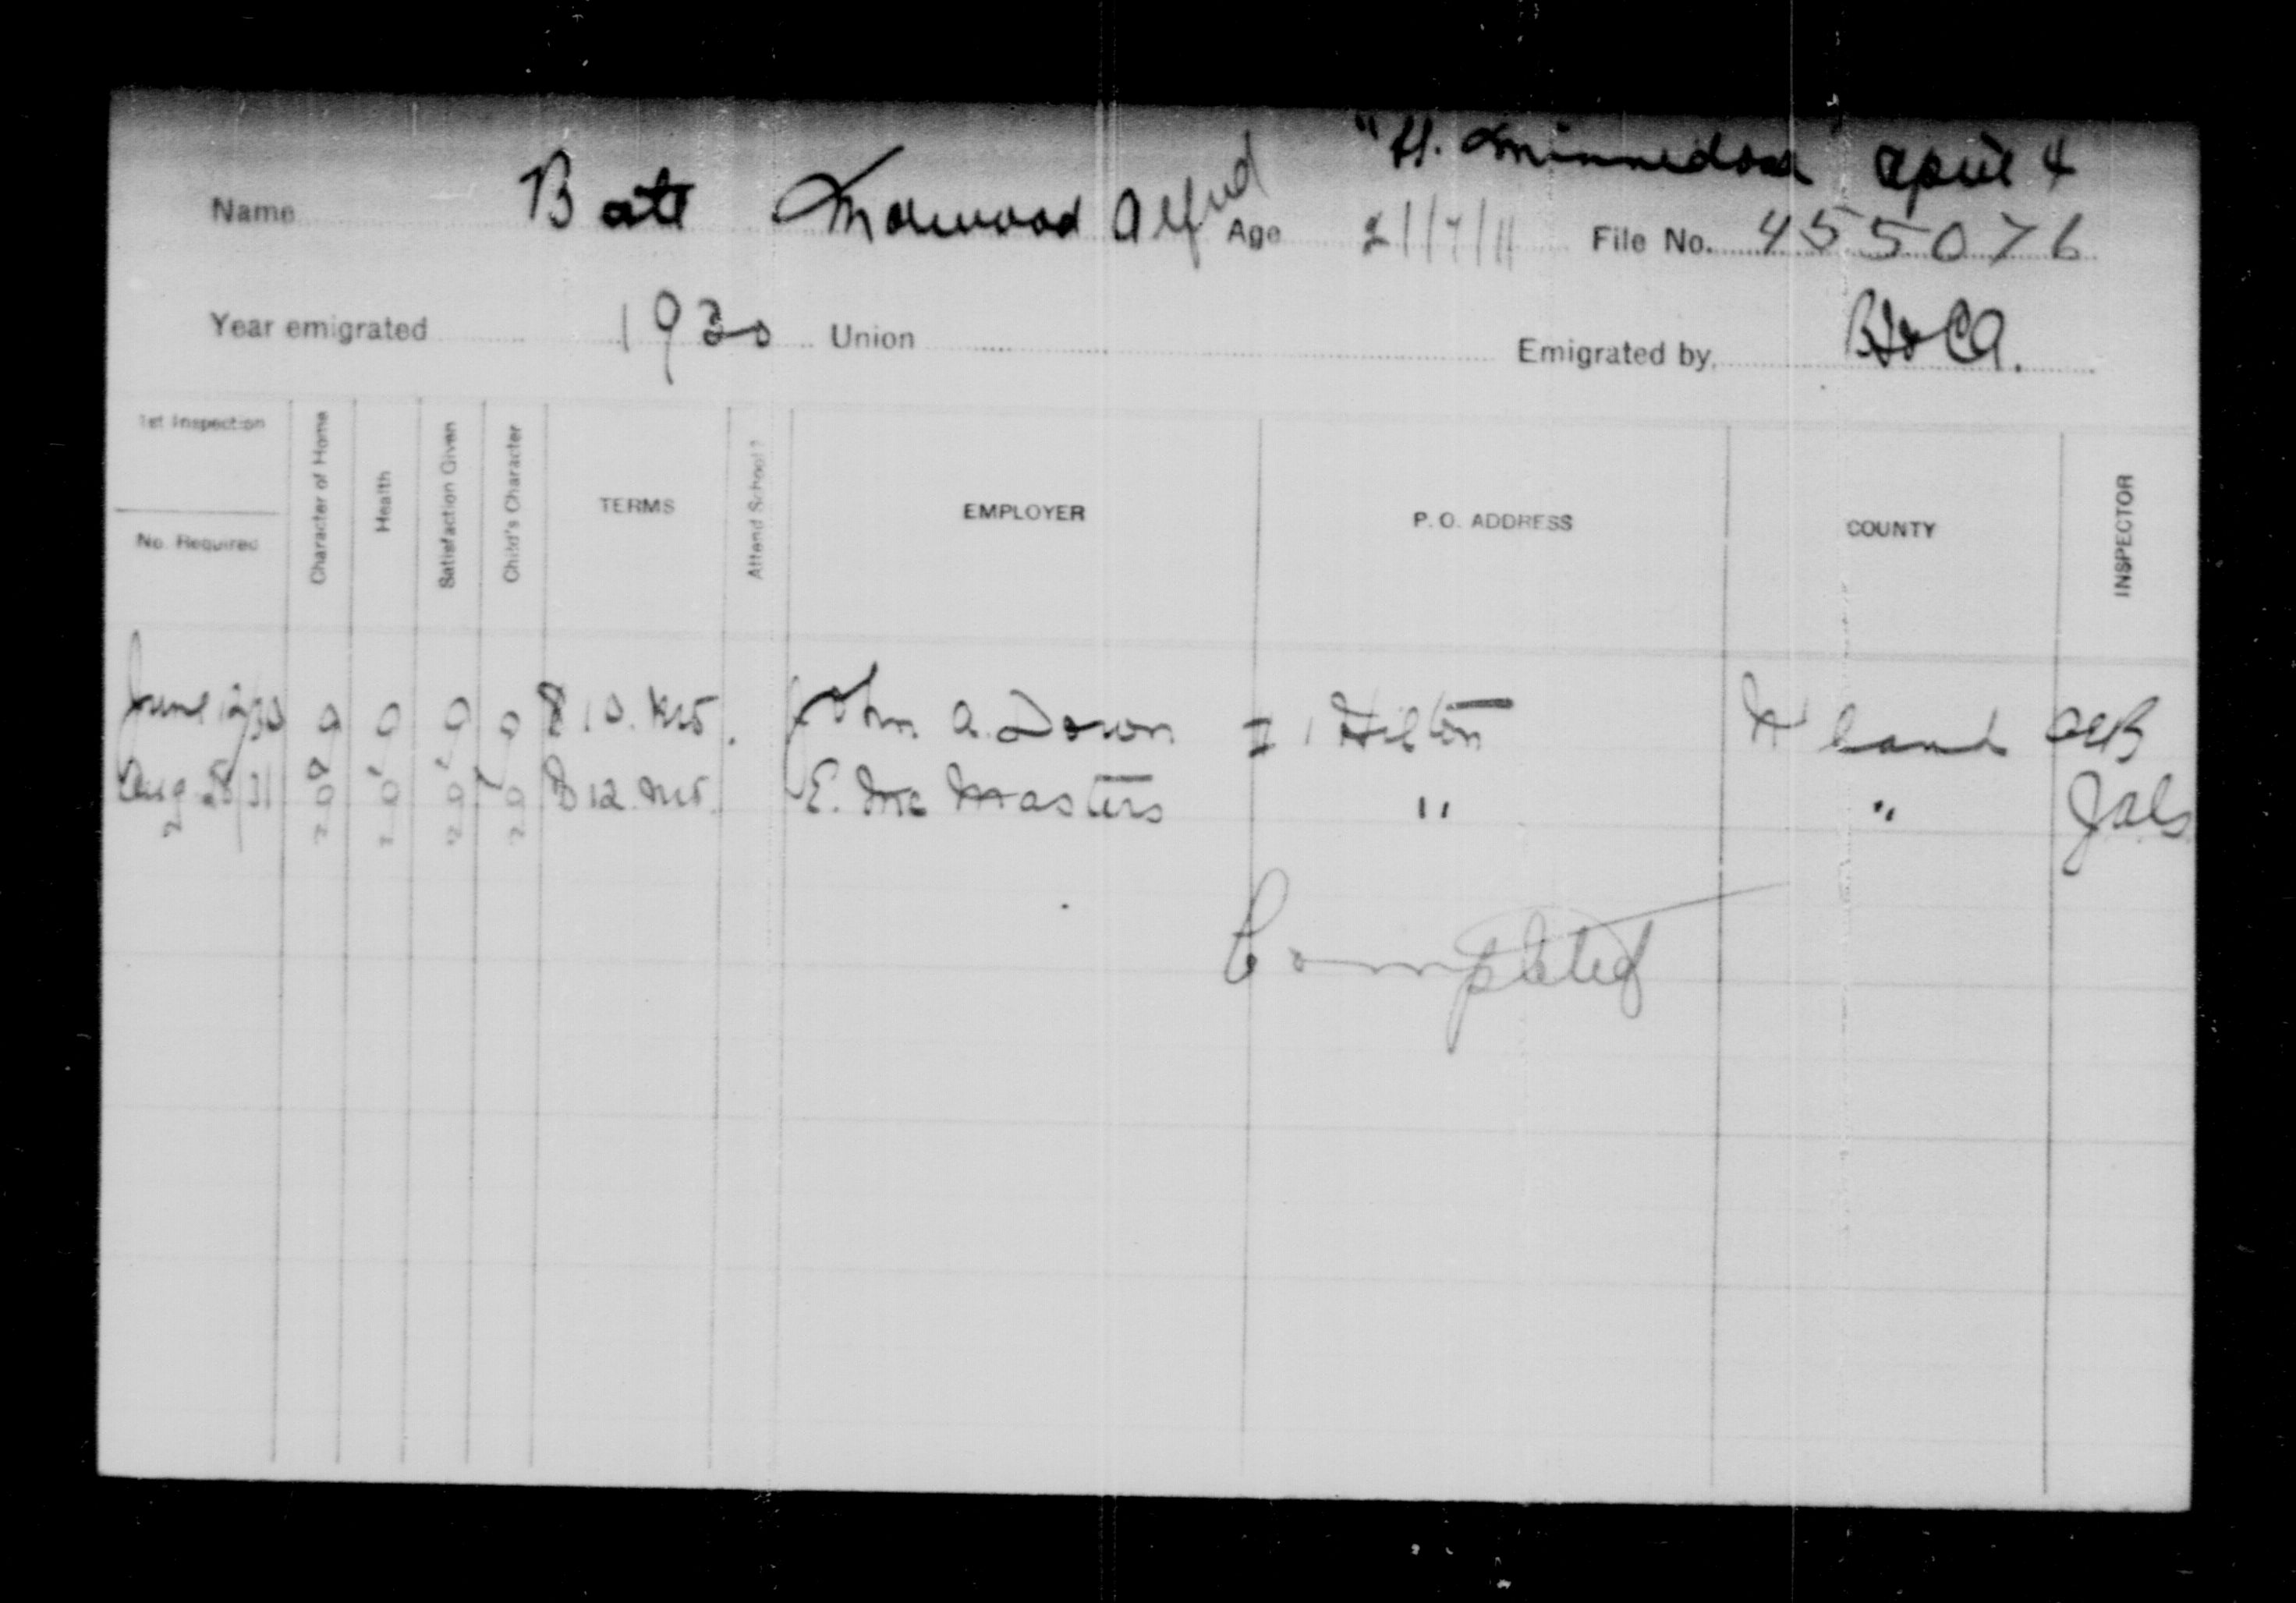 "H. Minnedosa April 4
Name Bate Norwood Alfred Age 2/7/11 File No. 455076
Year emigrated 1930 Union Emigrated by
1st Inspection
No. Required
Character of Home
Health
Satisfaction Given
Child's Character
TERMS
Attend School?
EMPLOYER
P. O. ADDRESS
COUNTY
INSPECTOR
June 12/30 $10. John A. Down 1 Hilton N'land
Aug 31 $12. E. McMasters " "
Completed